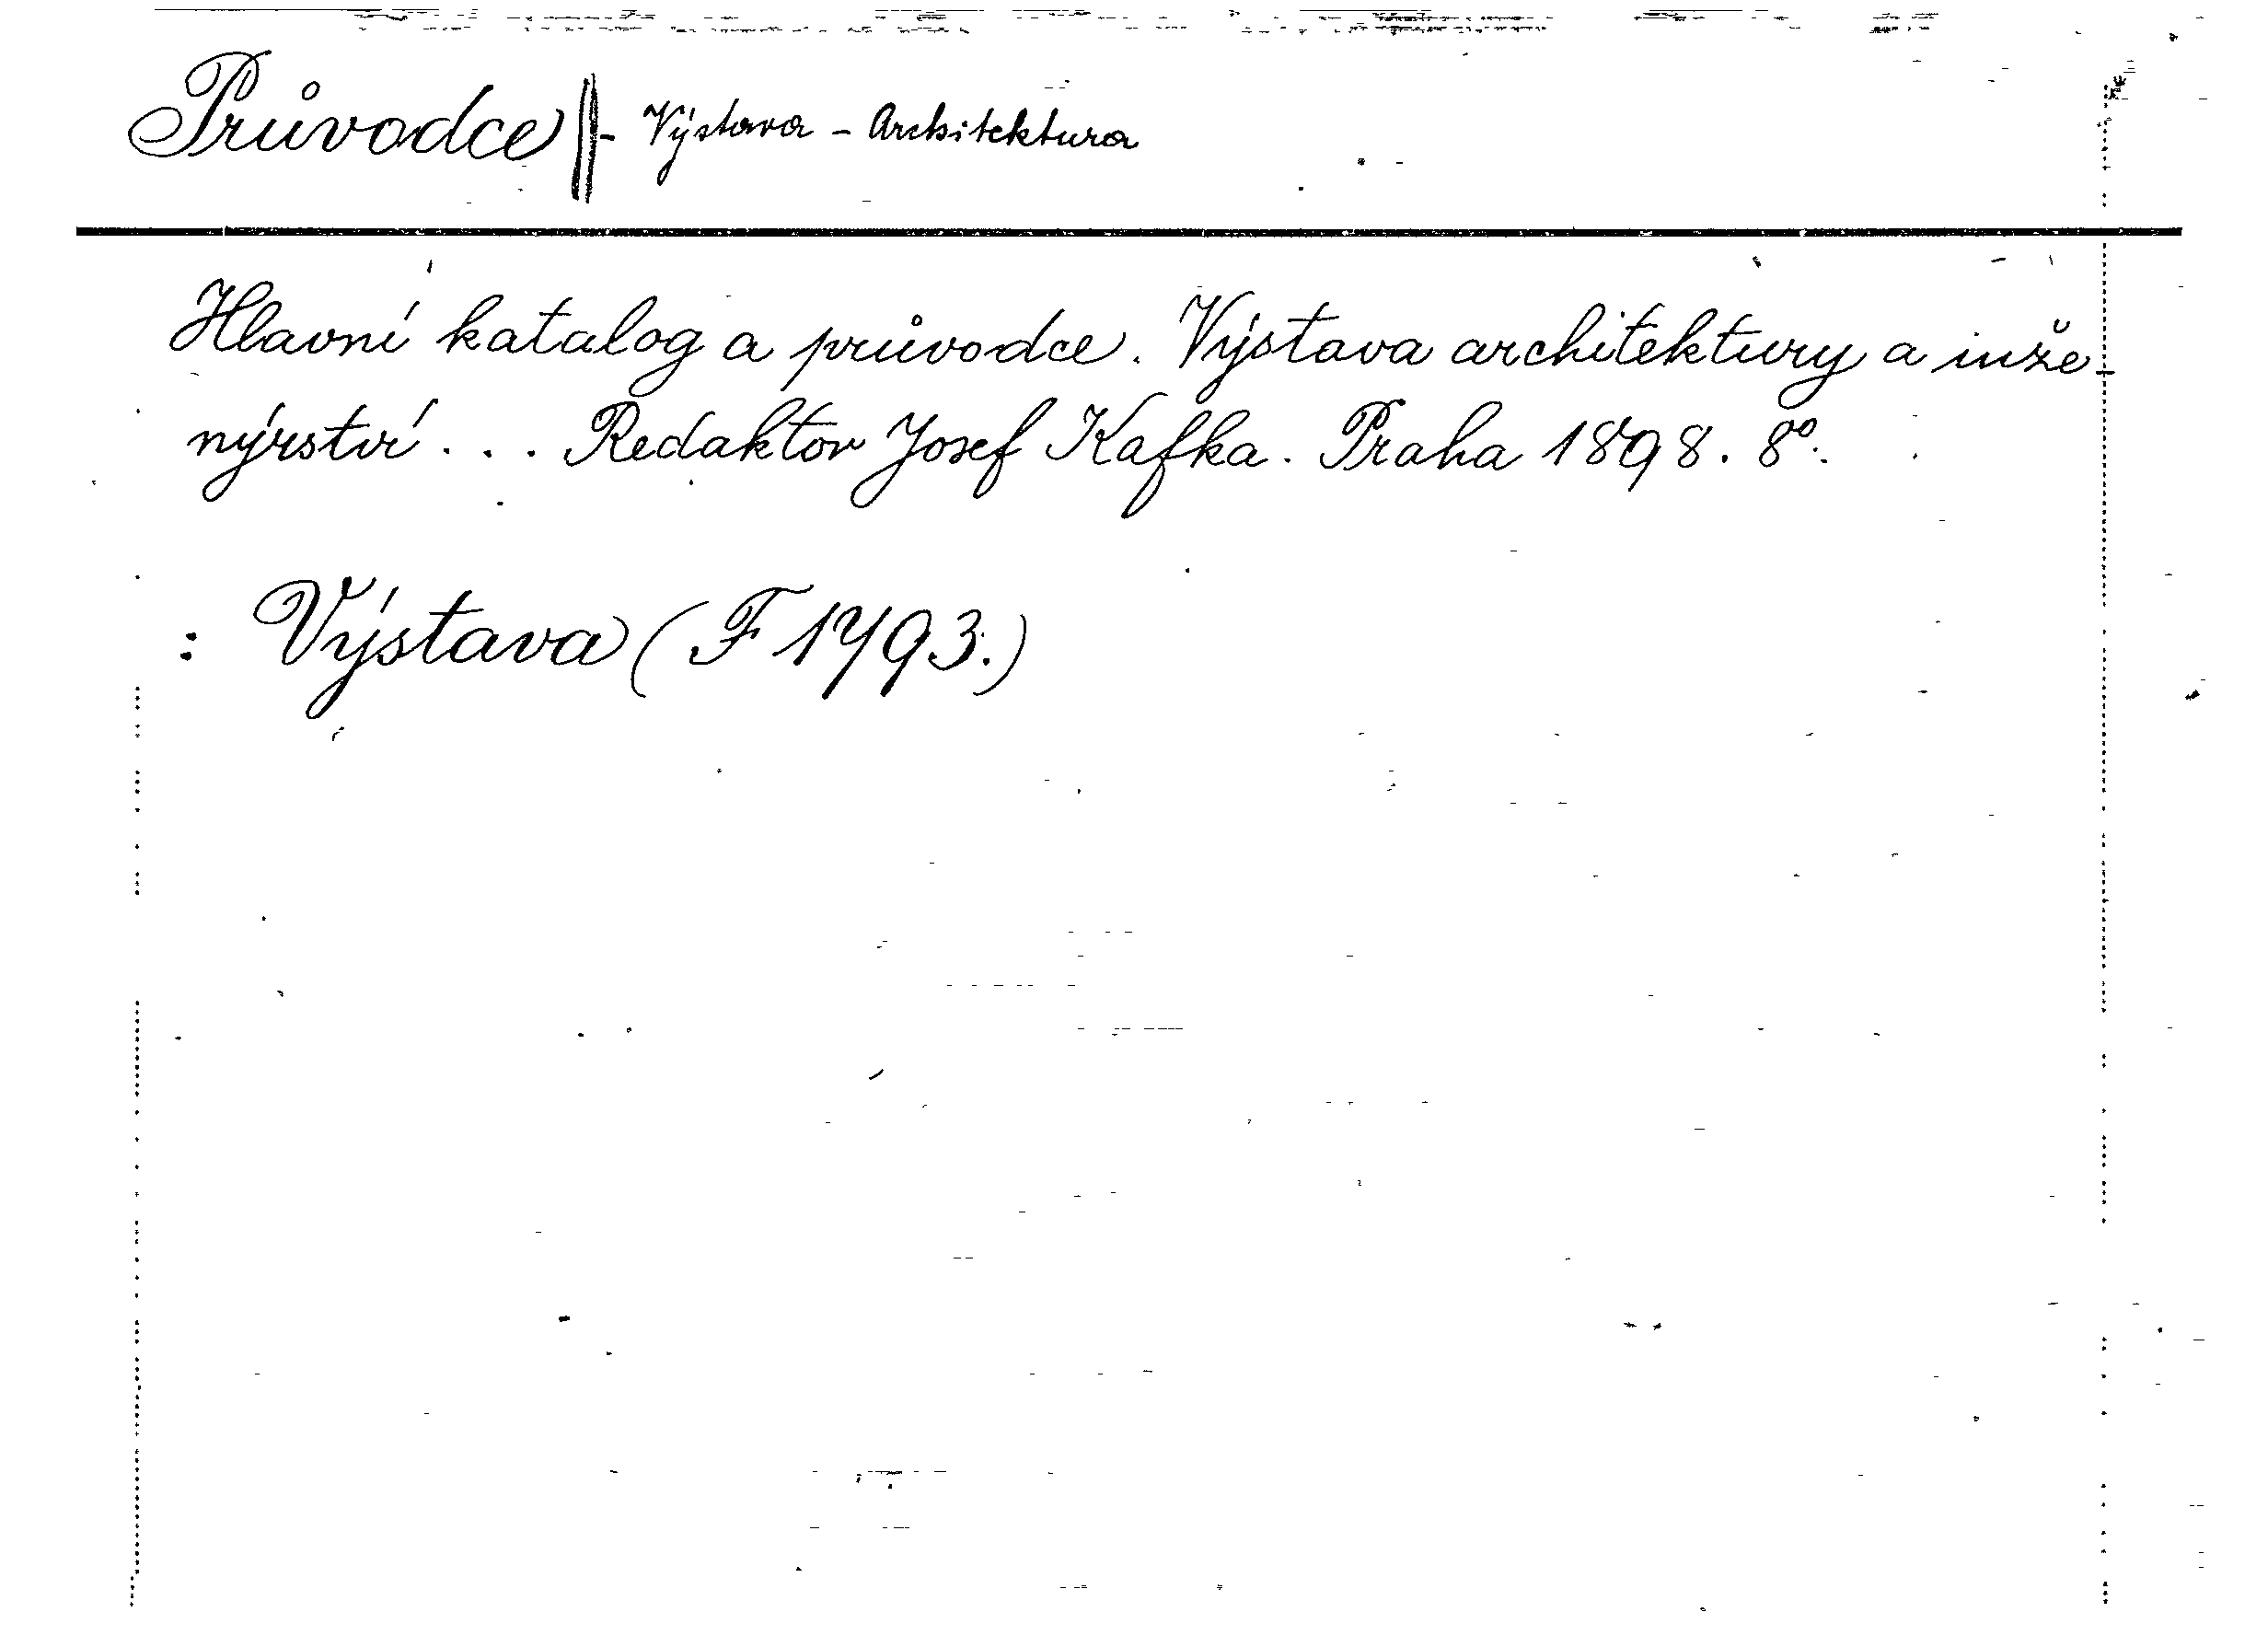 Průvodce - Výstava - Architektura
Hlavní katalog a průvodce. Výstava architektury a inže-
nýrství... Redaktor Josef Kafka. Praha 1898. 8°.
: Výstava (F 1793.)